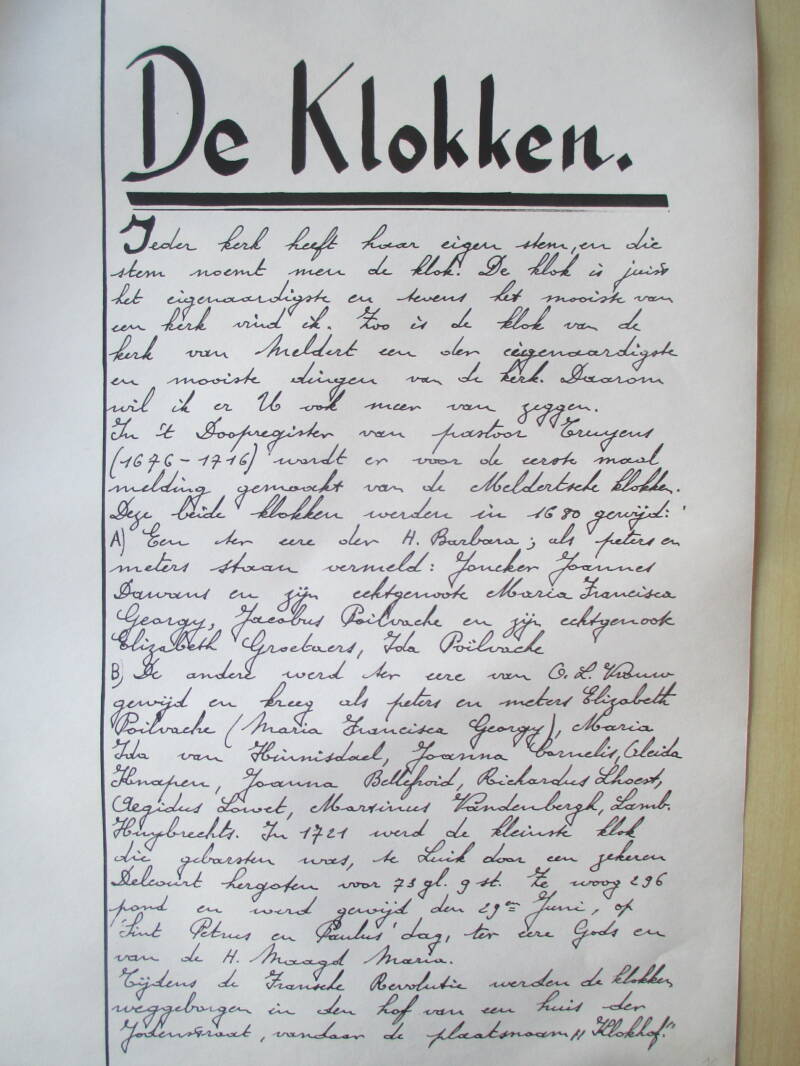 De Klokken.
Ieder kerk heeft haar eigen stem, en die
stem noemt men de klok. De klok is juist
het eigenaardigste en tevens het mooiste van
een kerk vind ik. Zoo is de klok van de
kerk van Meldert een der eigenaardigste
en mooiste dingen van de kerk. Daarom
wil ik er U ook meer van zeggen.
In 't Doopregister van pastoor Truyens
(1676-1716) wordt er voor de eerste maal
melding gemaakt van de Meldertsche klokken.
Deze beide klokken werden in 1680 gewijd:
A) Een ter eere der H. Barbara; als peters en
meters staan vermeld: Joncker Joannes
Dawans en zijn echtgenoote Maria Francisca
Georgy, Jacobus Poilvache en zijn echtgenoote
Elizabeth Groetaers, Ida Poilvache
B) De andere werd ter eere van O. L. Vrouw
gewijd en kreeg als peters en meters Elizabeth
Poilvache (Maria Francisca Georgy), Maria
Ida van Hinnisdael, Joanna Cornelis, Aleida
Knapen, Joanna Bellefroid, Richardus Lhoest,
Aegidus Lowet, Martinus Vandenbergh, Lamb.
Huybrechts. In 1721 werd de kleinste klok
die gebarsten was, te Luik door een zekeren
Delcourt hergoten voor 73 gl. 9 st. Ze woog 296
pond en werd gewijd den 29en Juni, op
'Sint Petrus en Paulus' dag, ter eere Gods en
van de H. Maagd Maria.
Tijdens de Fransche Revolutie werden de klokken
weggeborgen in den hof van een huis der
Jodenstraat, vandaar de plaatsnaam „Klokhof."